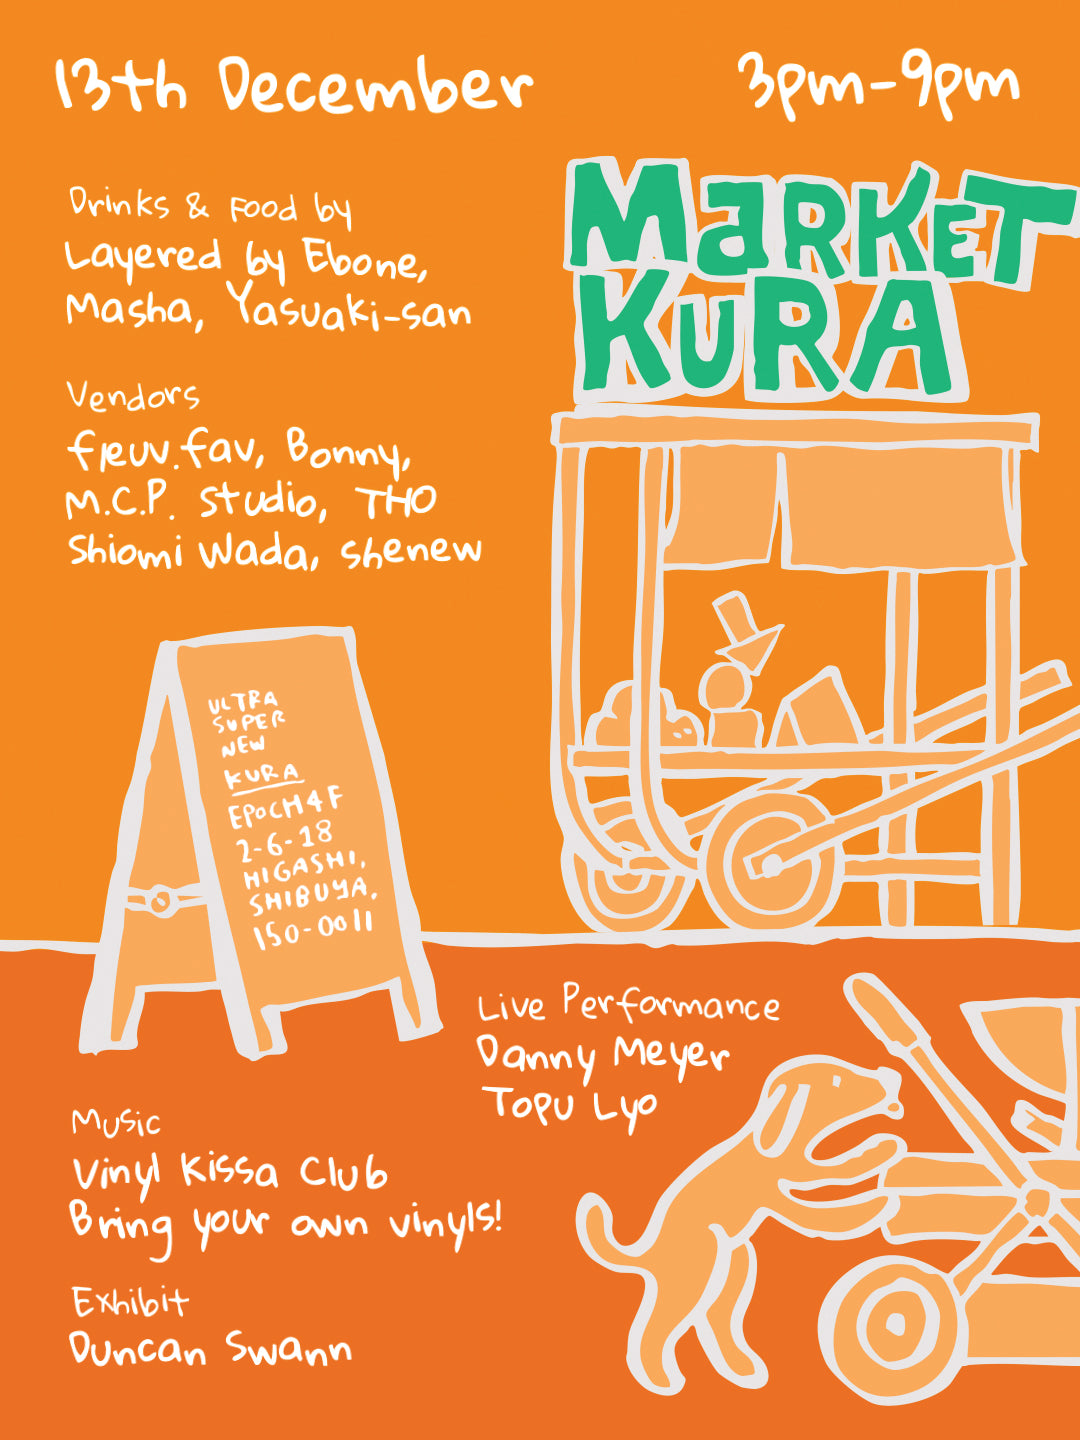 13th December
3pm-9pm
MaRKET
KURA
Drinks & Food by
Layered by Ebone,
Masha, Yasuaki-san
Vendors
fleuv.fav, Bonny,
M.C.P. studio, THO
Shiomi Wada, shenew
ULTRA
SUPER
NEW
KURA
EPOCH4F
2-6-18
HIGASHI,
SHIBUYA,
150-0011
Live Performance
Danny Meyer
Topu Lyo
Music
Vinyl Kissa Club
Bring your own vinyls!
Exhibit
Duncan Swann